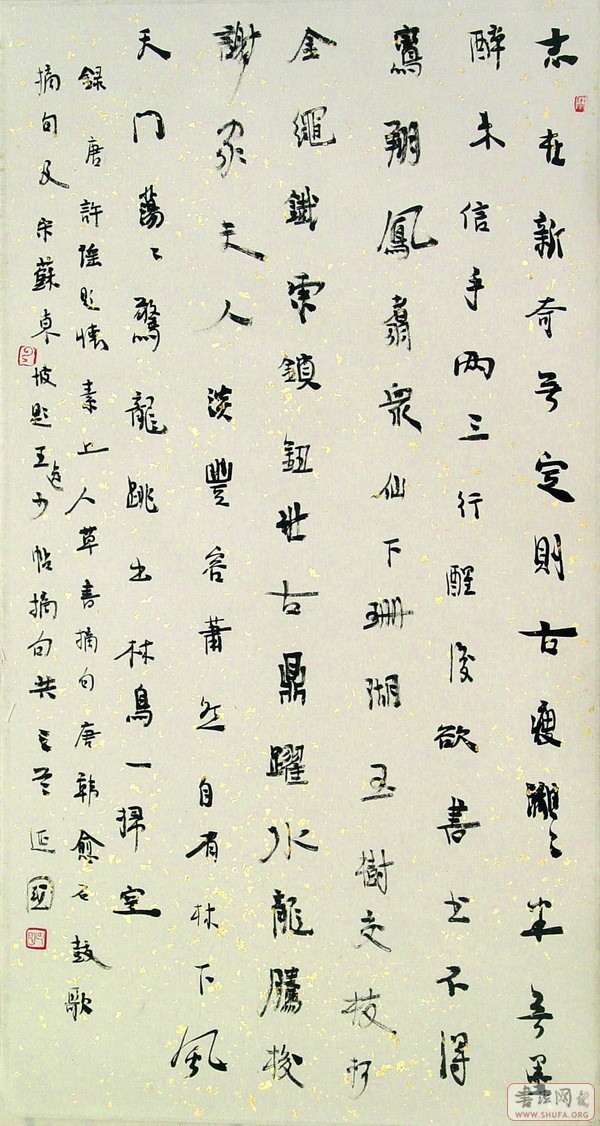 志在新奇無定則古瘦灕〻半無墨
醉来信手兩三行醒後欲書書不得
鸞翔鳳翥衆仙下珊瑚玉樹交枝柯
金繩鐵索鎖鈕壯古鼎躍水龍騰梭
謝家夫人淡豐容蕭然自有林下風
天門蕩〻驚龍跳出林鳥一掃空
録唐許瑶題懷素上人草書摘句唐韓愈石鼓歌
摘句及宋蘇東坡題王逸少帖摘句共三首延
書法网
WWW.SHUFA.ORG